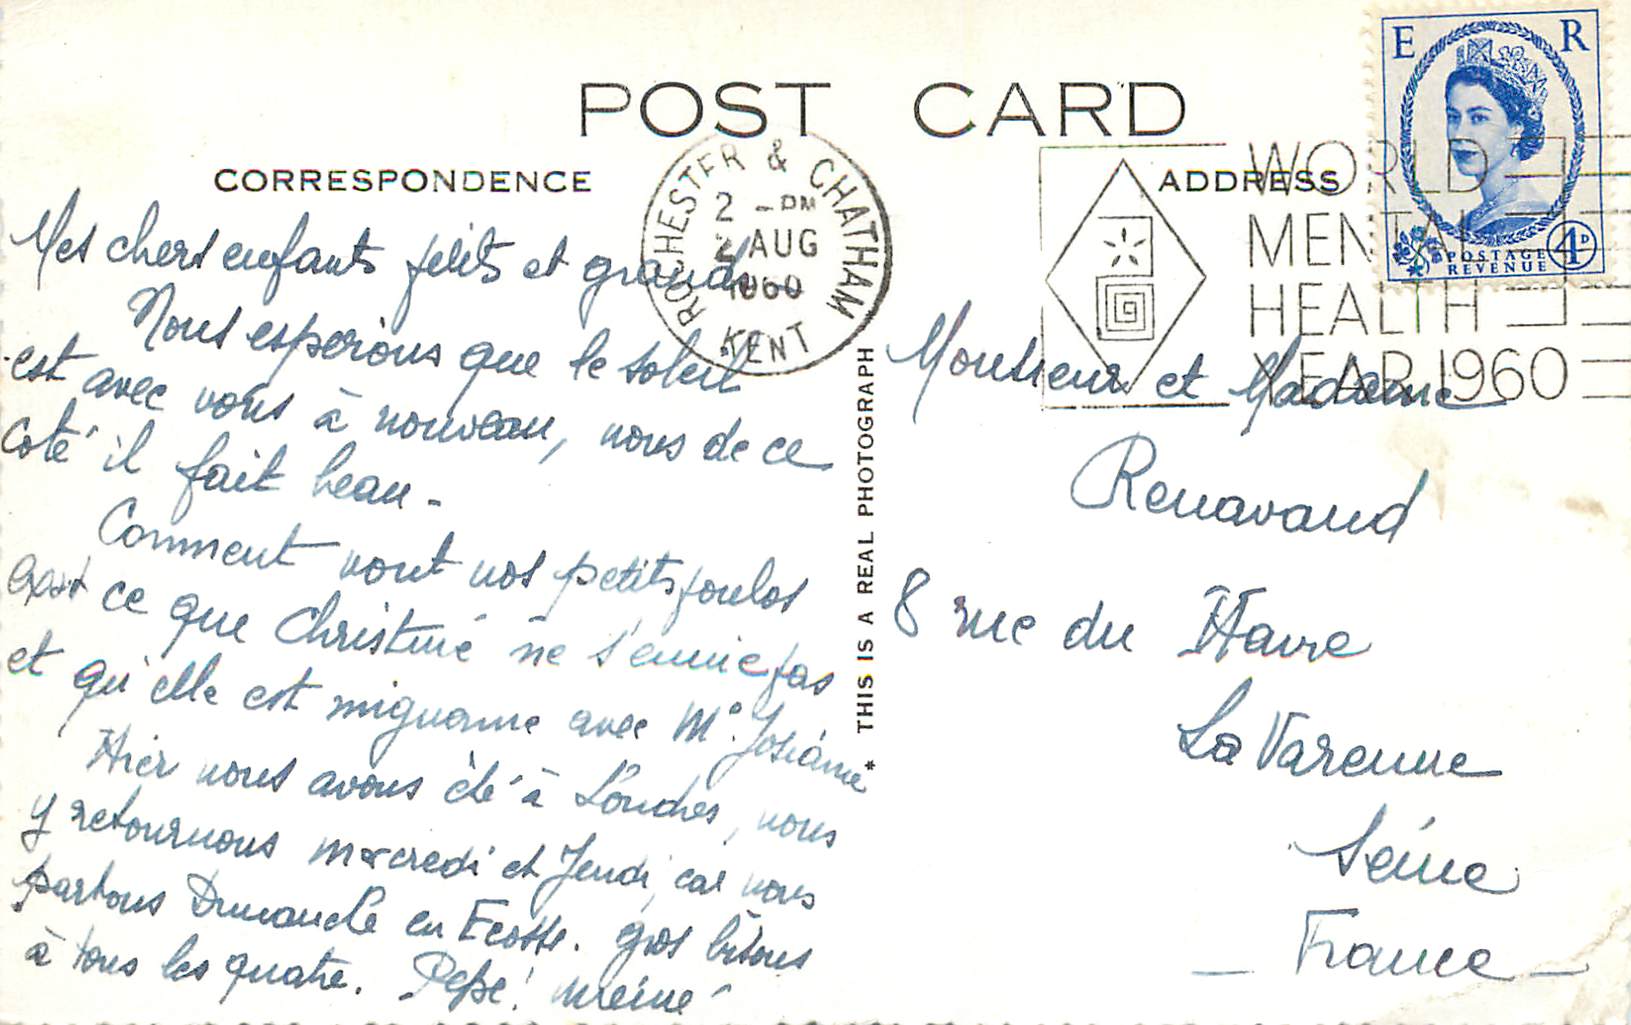 POST CARD
CORRESPONDENCE
ADDRESS
ROCHESTER & CHATHAM
2 - PM
2 AUG
1960
KENT
WORLD
MENTAL
HEALTH
YEAR 1960
E R
POSTAGE
REVENUE
4D
Mes chers enfants petits et grands
Nous esperions que le soleil
est avec vous à nouveau, nous de ce
coté il fait beau -
Comment vont nos petits poulos
est ce que Christine ne s'ennuie pas
et qu'elle est mignonne avec Me Josiane
Hier nous avons été à Londres, nous
y retournons mercredi et Jeudi, car nous
partons Dimanche en Ecosse. gros bisous
à tous les quatre. Pépé!
THIS IS A REAL PHOTOGRAPH
Monsieur et Madame
Renavand
8 rue du Havre
La Varenne
Seine
_ France _